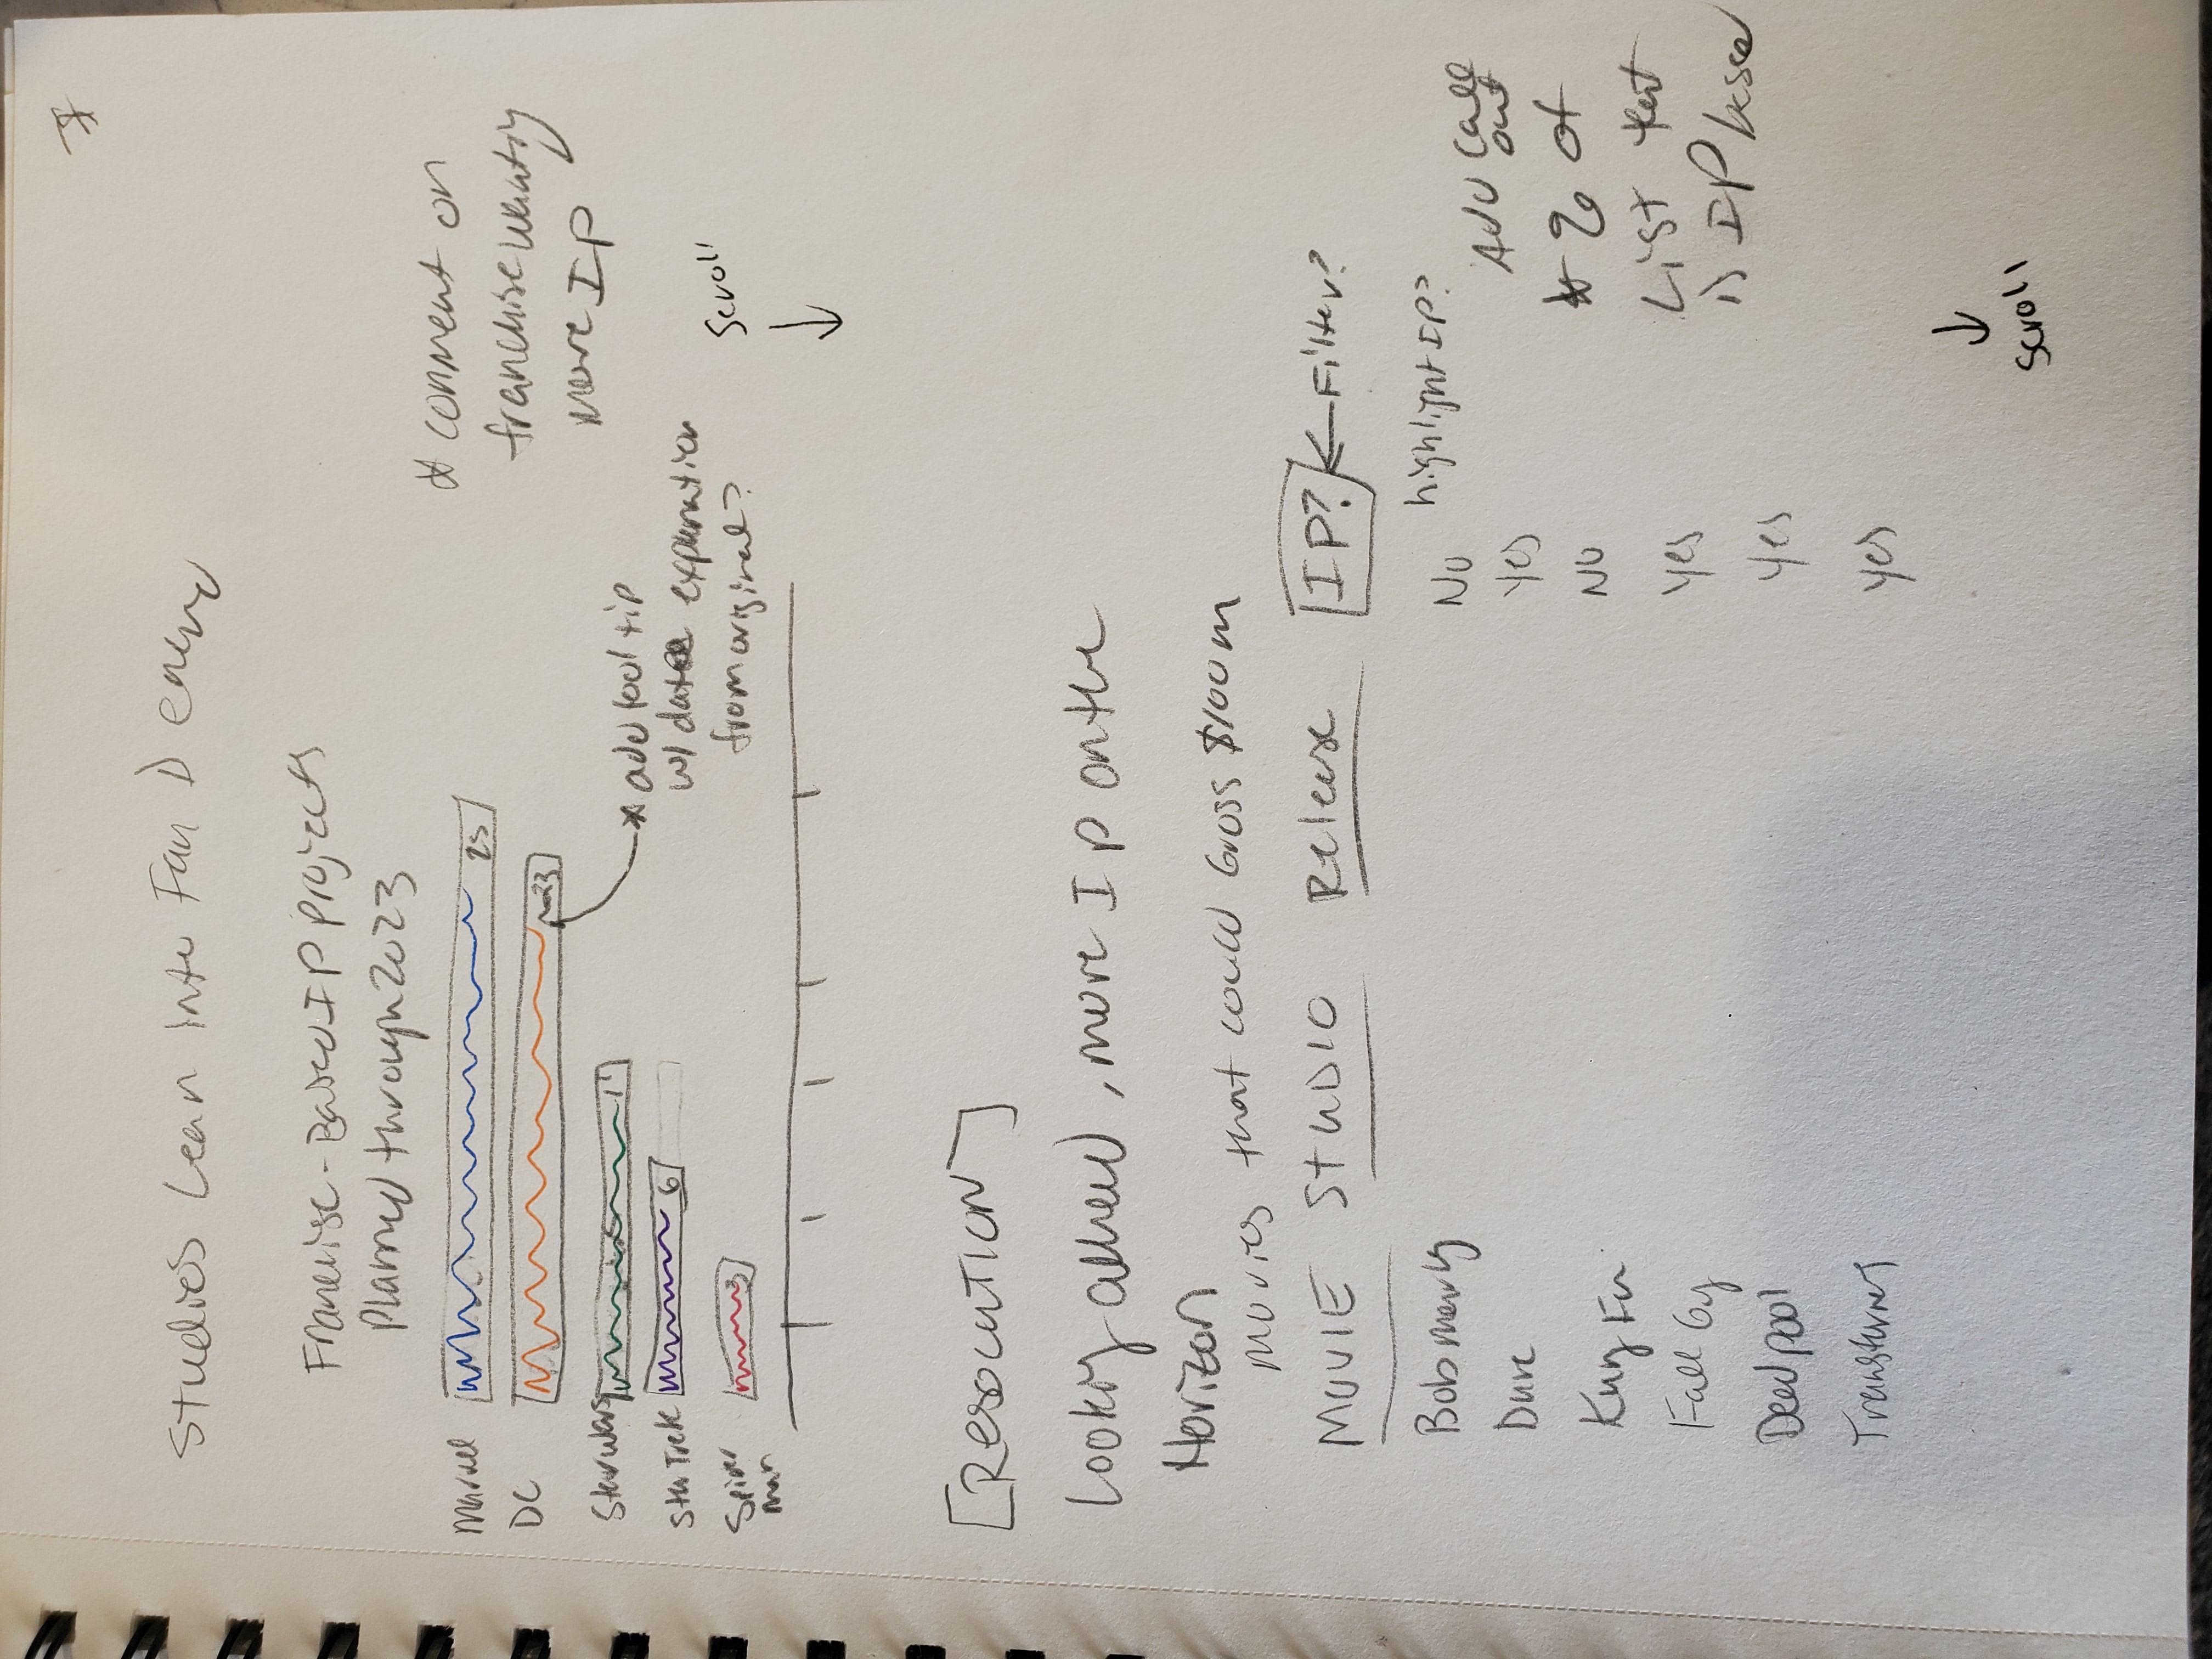 Studios Lean Into Fan Demand
Franchise-Based IP projects
Planned through 2023
Marvel 25
DC 23
Star Wars 11
Star Trek 6
Spider
man 3
* comment on
franchise wanting
more IP
* add tool tip
w/ data explanation
from original?
Scroll
[RESOLUTION]
Looking ahead, more IP on the
Horizon
Movies that could Gross $100m
MOVIE STUDIO Release IP? Filter?
Bob marly No highlight IP?
Dune Yes
Kung Fu No
Fall Guy Yes
Deadpool Yes
Transformers Yes
Add Call
out
* % of
List that
is IP based
Scroll